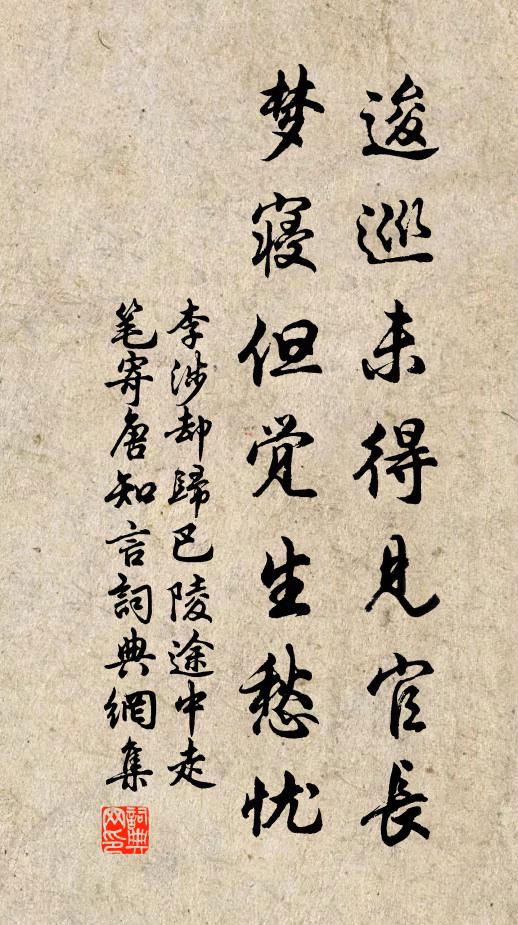 逡巡未得見官長
梦寝但觉生愁忧
李涉却歸巴陵途中走
笔寄唐知言詞典網集
詞典网印